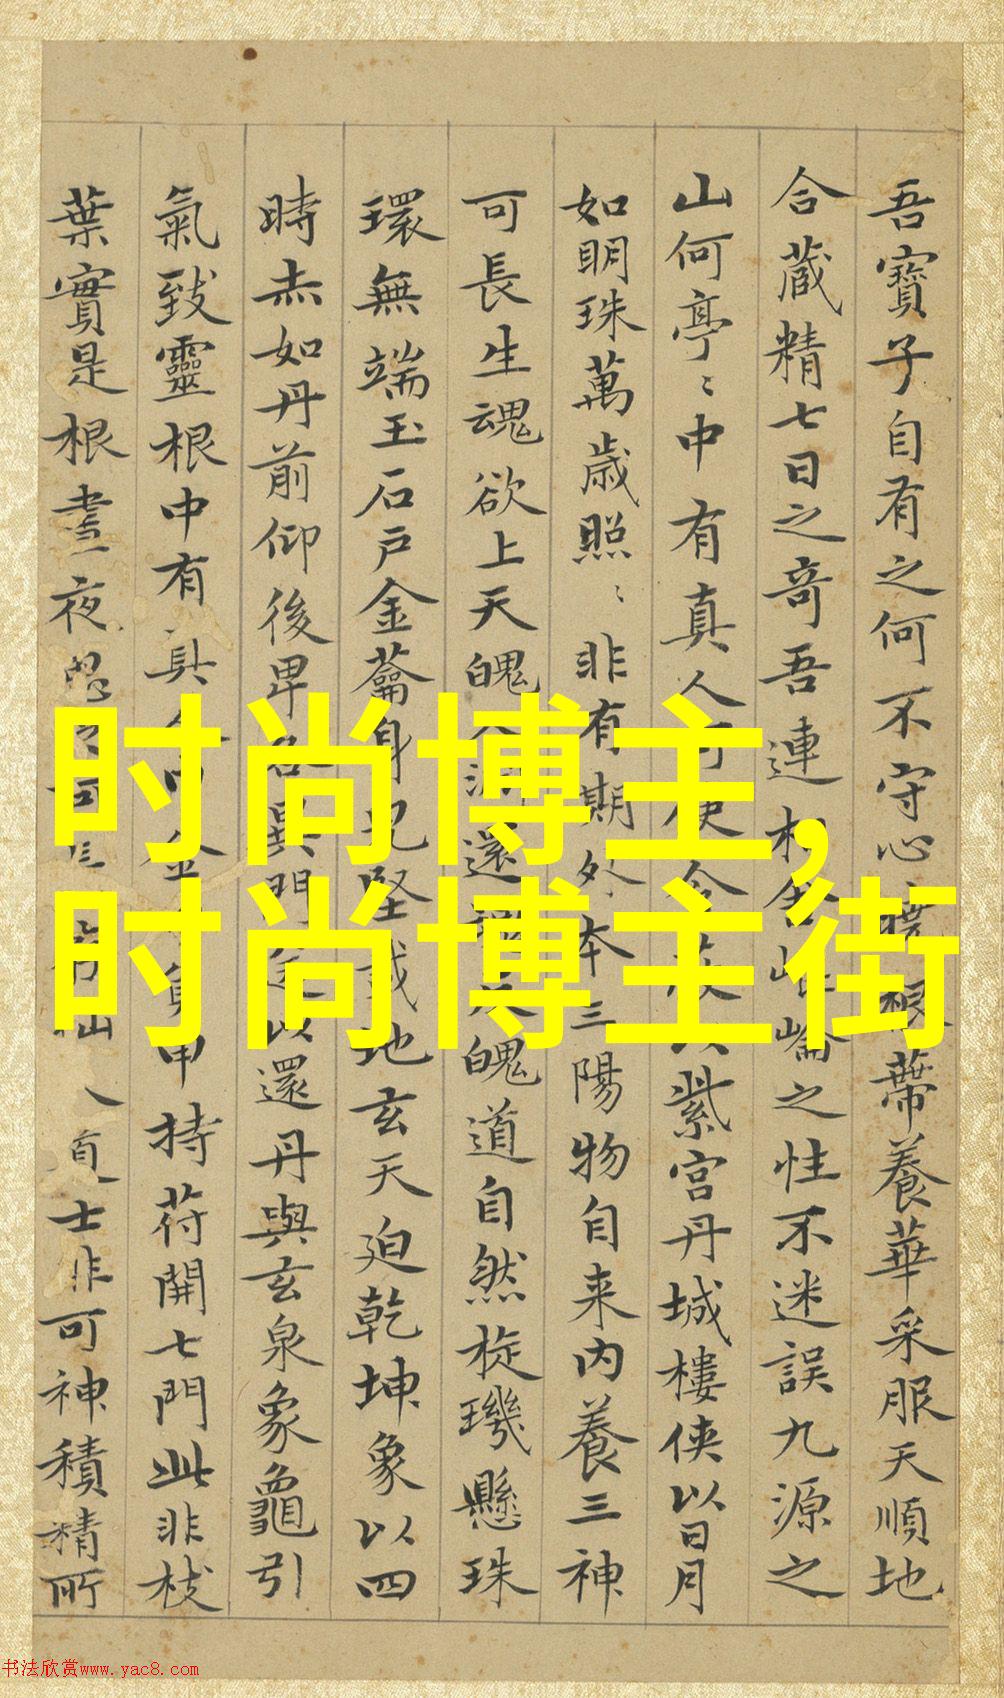 吾寶子自有之何不守心 根蔕養華采服天順地
合藏精七日之奇吾連 之性不迷誤九源之
山何亭〻中有真人 紫宮丹城樓俠以日月
如明珠萬歲照〻非有期外本三陽物自来内養三神
可長生魂欲上天魄 還 魄道自然旋璣懸珠
環無端玉石戶金蘥身 堅 地玄天迫乾坤象以四
時赤如丹前仰後卑 異門 以還丹與玄泉象龜引
氣致靈根中有真 持苻開七門此非枝
葉實是根晝夜 士非可神積精所
时尚博主,
时尚博主街
书法欣赏www.yac8.com